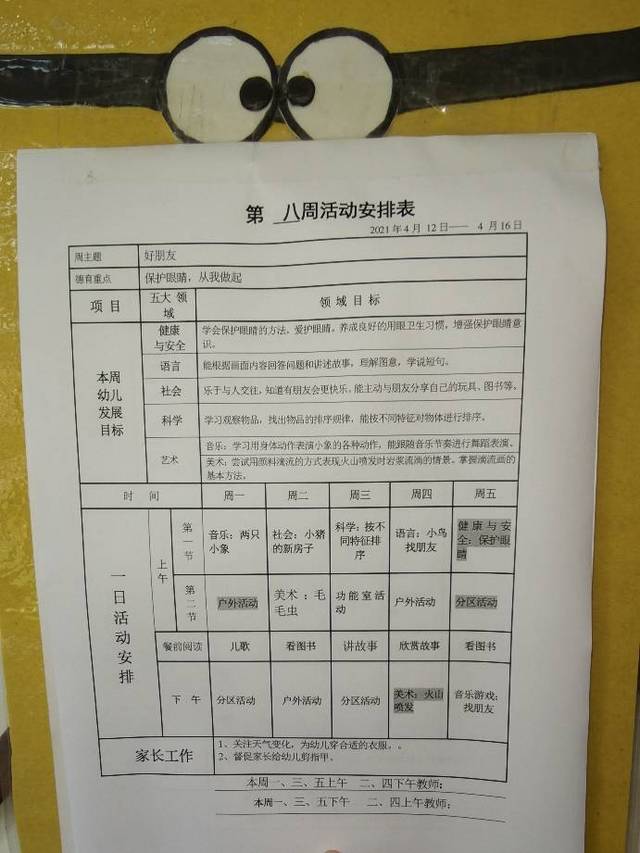 第 八周活动安排表
2021年4月 12日—— 4 月16日
周主题 好朋友
德育重点 保护眼睛,从我做起
项 目 五大 领域 领 域 目 标
本周幼儿发展目标
健康与安全 学会保护眼睛的方法。爱护眼睛,养成良好的用眼卫生习惯,增强保护眼睛意
识。
语言 能根据画面内容回答问题和讲述故事,理解图意,学说短句。
社会 乐于与人交往,知道有朋友会更快乐,能主动与朋友分享自己的玩具、图书等。
科学 学习观察物品,找出物品的排序规律,能按不同特征对物体进行排序。
艺术 音乐:学习用身体动作表演小象的各种动作,能跟随音乐节奏进行舞蹈表演。
美术:尝试用颜料滴流的方式表现火山喷发时岩浆流淌的情景。掌握滴流画的
基本方法。
时 间 周一 周二 周三 周四 周五
一日活动安排
上午
第一节 音乐:两只小象 社会:小猪的新房子 科学:按不同特征排序 语言:小鸟找朋友 健康与安全:保护眼睛
第二节 户外活动 美术:毛毛虫 功能室活动 户外活动 分区活动
餐前阅读 儿歌 看图书 讲故事 欣赏故事 看图书
下 午 分区活动 户外活动 分区活动 美术:火山喷发 音乐游戏:找朋友
家长工作 1、关注天气变化,为幼儿穿合适的衣服。。
2、督促家长给幼儿剪指甲。
本周一、三、五上午 二、四下午教师:
本周一、三、五下午 二、四上午教师: